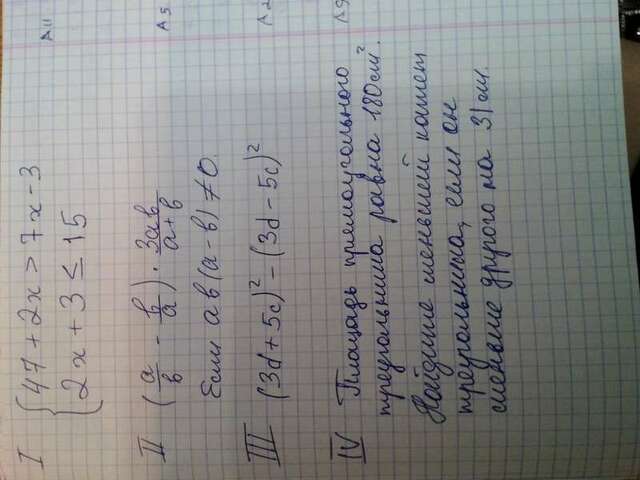 I { 47 + 2x > 7x - 3
2x + 3 ≤ 15
II (a/в - в/a) · 3aв/(a+в)
Если aв(a-в) ≠ 0.
III (3d + 5c)² - (3d - 5c)²
IV Площадь прямоугольного
треугольника равна 180см².
Найдите меньший катет
треугольника, если он
меньше другого на 31см.
А11
А5